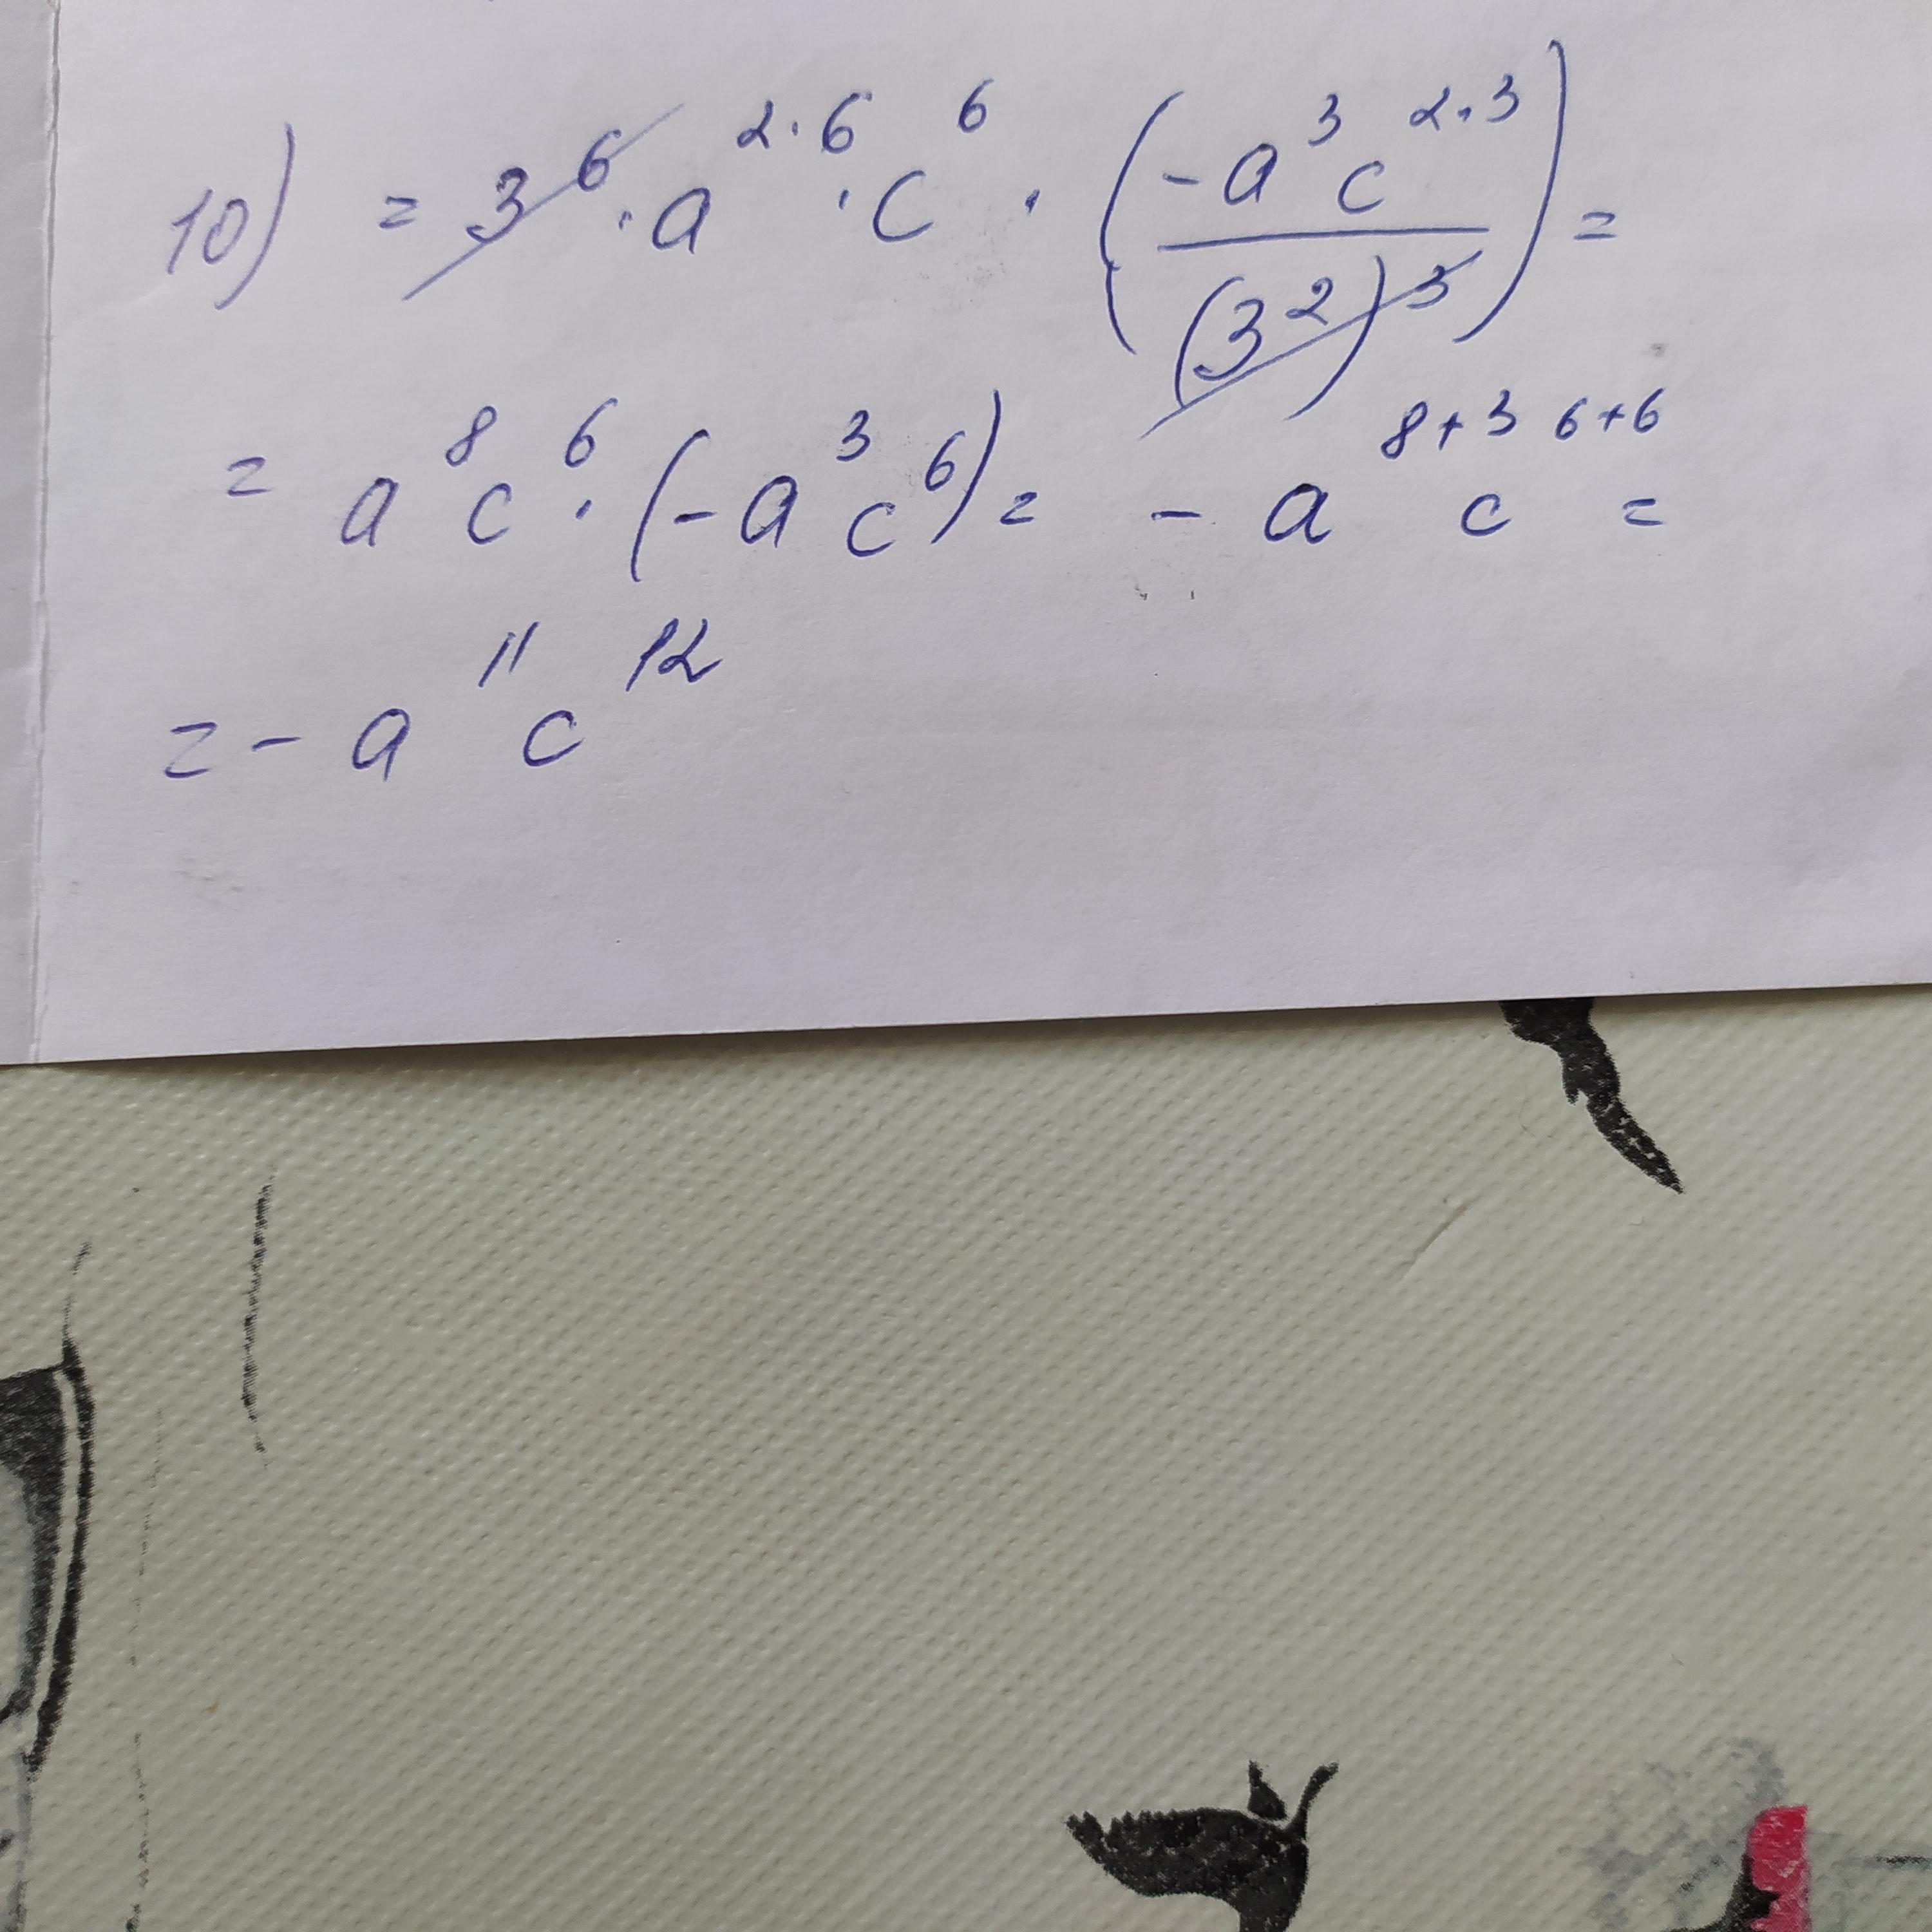 10) = 3^6 · a^{2·6} · c^6 · (-a^3 c^{2·3} / (3^2)^3) =
= a^8 c^6 · (-a^3 c^6) = - a^{8+3} c^{6+6} =
= - a^{11} c^{12}